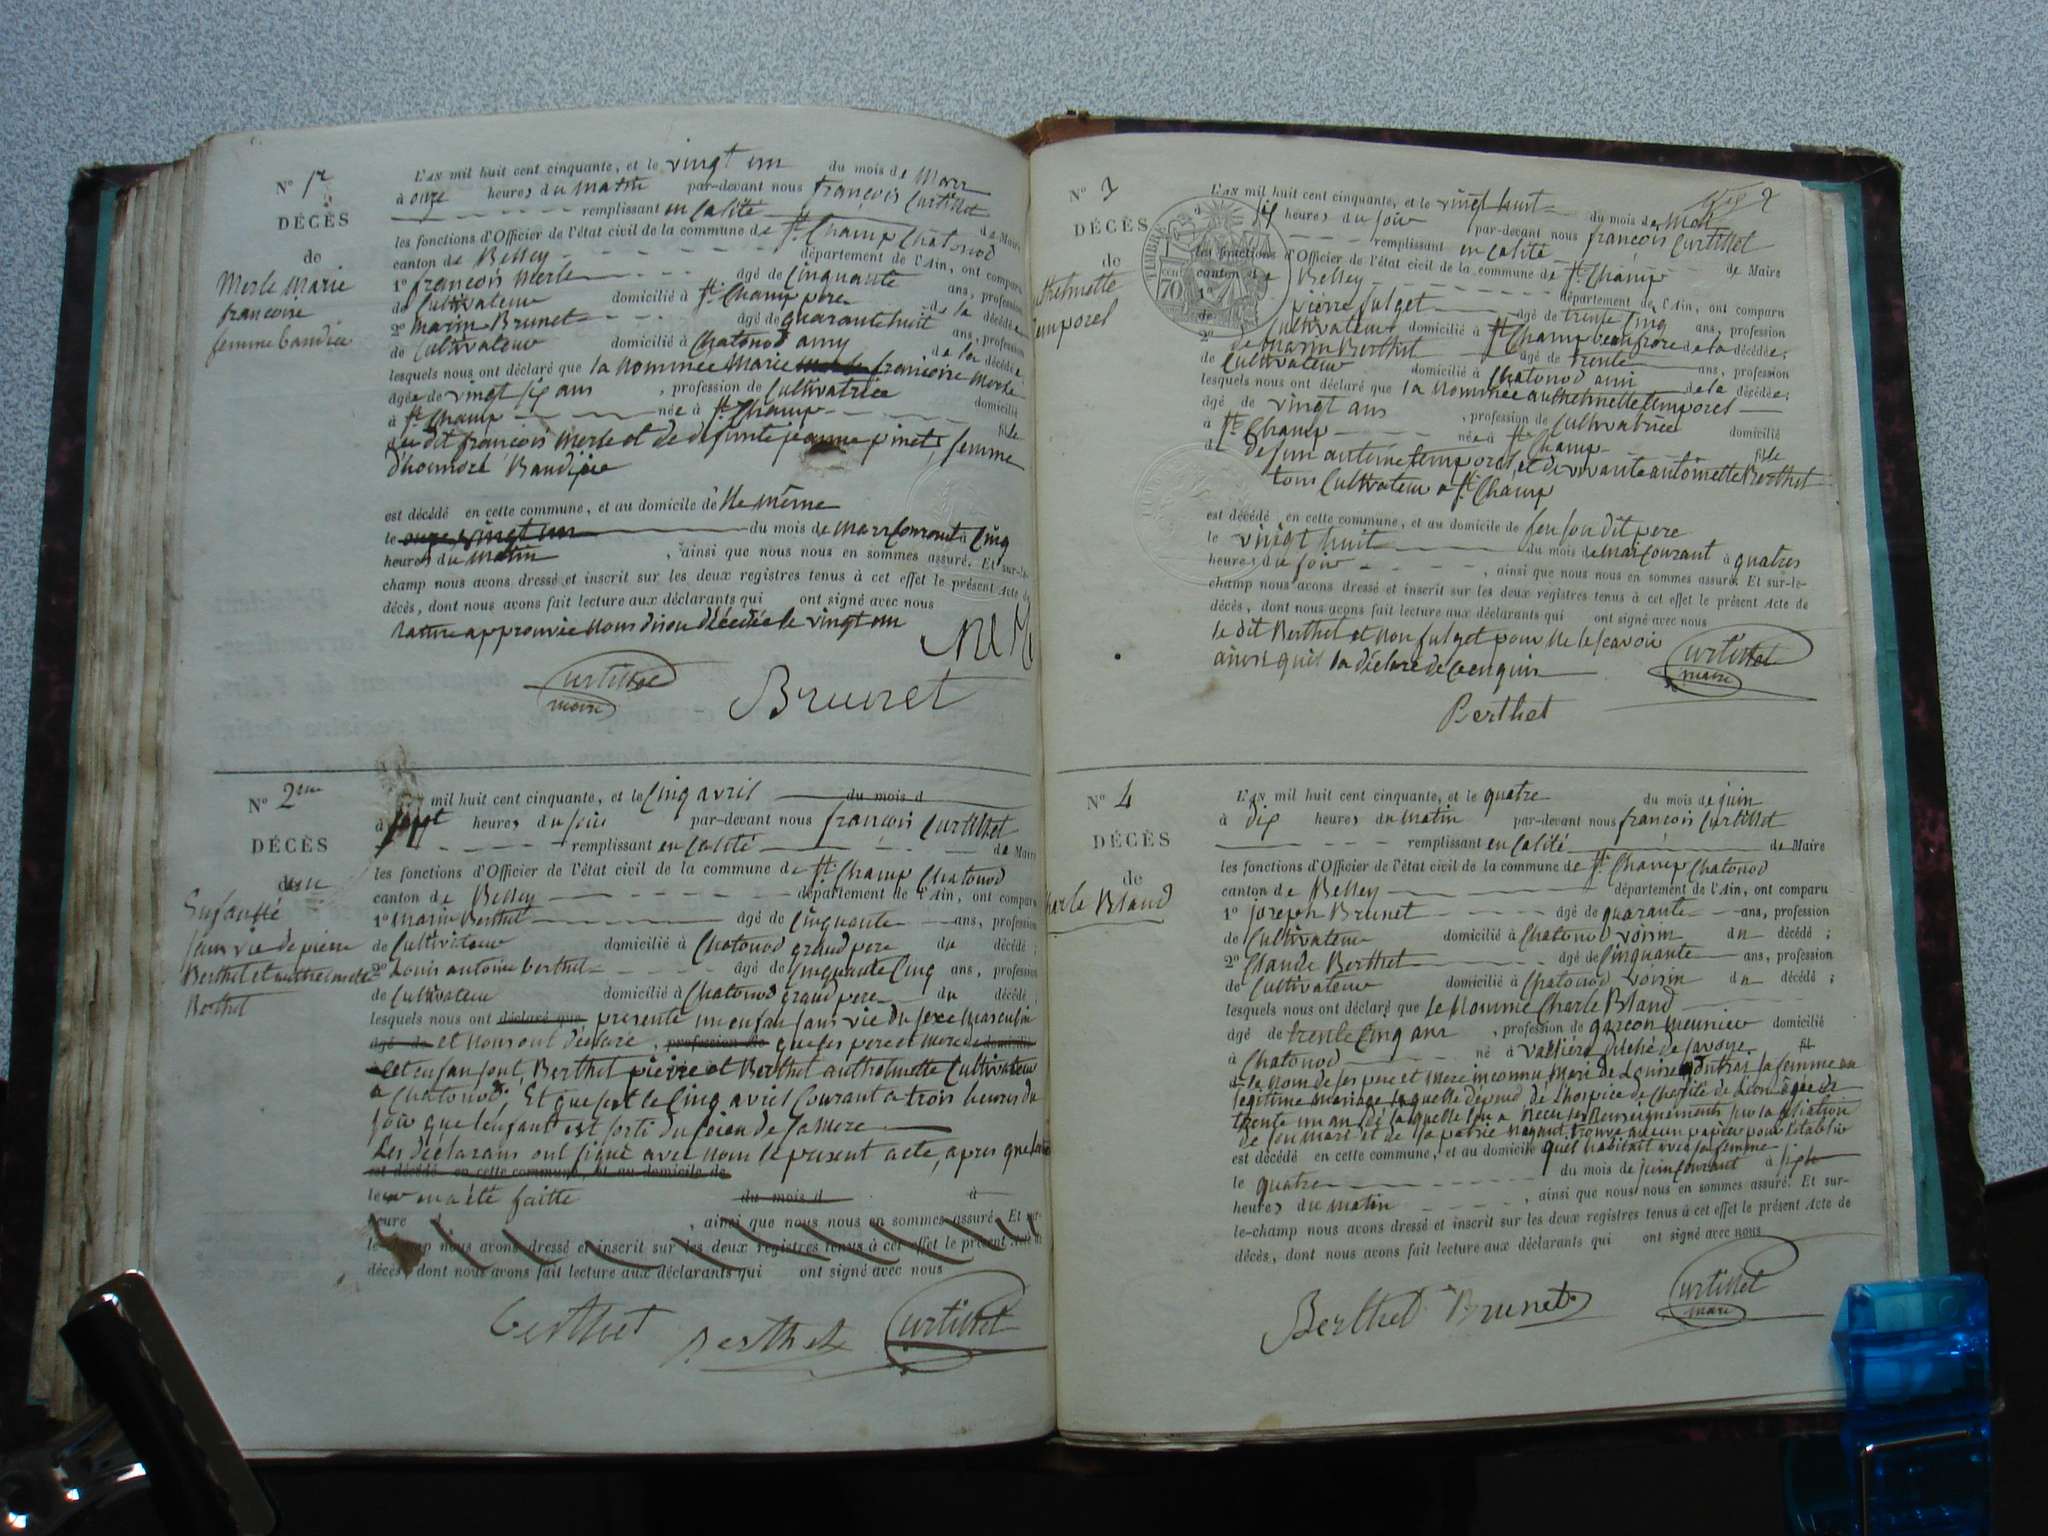 N° 1er
DÉCÈS
de
Merle Marie
francoise
femme baudier
L'AN mil huit cent cinquante, et le vingt un du mois de Mars
à onze heures du matin par-devant nous françois Curtillet
remplissant en calité de Maire
les fonctions d'Officier de l'état civil de la commune de St Champ Chatonod
canton de Belley département de l'Ain, ont comparu
1° françois Merle âgé de cinquante ans, profession
de Cultivateur domicilié à St Champ pere de la décédée
2° Marin Brunet âgé de quarante huit ans, profession
de Cultivateur domicilié à Chatonod amy de la décédée
lesquels nous ont déclaré que la nommée Marie françoise Merle
âgée de vingt six ans, profession de Cultivatrice domicilié
à St Champ née à St Champ fille
du dit françois Merle et de defunte jeanne pinet, femme
d'honnoré Baudier
est décédé en cette commune, et au domicile d'elle même
le onze vingt un du mois de Mars courant à cinq
heures du matin, ainsi que nous nous en sommes assuré. Et sur-le-
champ nous avons dressé et inscrit sur les deux registres tenus à cet effet le présent Acte de
décès, dont nous avons fait lecture aux déclarants qui ont signé avec nous
rature approuvée nous disons décédée le vingt un
Curtillet
maire
Brunet
N° 2eme
DÉCÈS
Enfant né
sans vie de pierre
Berthet et anthelmette
Berthet
mil huit cent cinquante, et le cinq avril du mois d
à sept heures du soir par-devant nous françois Curtillet
remplissant en calité de Maire
les fonctions d'Officier de l'état civil de la commune de St Champ Chatonod
canton de Belley département de l'Ain, ont comparu
1° Marin Berthet âgé de cinquante ans, profession
de Cultivateur domicilié à Chatonod grand pere du décédé;
2° Louis antoine berthet âgé de cinquante cinq ans, profession
de Cultivateur domicilié à Chatonod grand pere du décédé;
lesquels nous ont déclaré que présenté un enfan sans vie du sexe masculin
âgé de et nous ont déclaré, profession de que les pere et mere de domicilié
cet enfan sont, Berthet pierre et Berthet anthelmette Cultivateur
a Chatonod; Et que cest le cinq avril courant a trois heures du
soir que l'enfant est sorti du sein de sa mere
Les déclarans ont signé avec nous le présent acte, apres que lecture
est décédé en cette commune, et au domicile de
leur en a été faitte du mois d à
heure d, ainsi que nous nous en sommes assuré. Et sur-
le-champ nous avons dressé et inscrit sur les deux registres tenus à cet effet le présent Acte de
décès, dont nous avons fait lecture aux déclarants qui ont signé avec nous
berthet Berthet Curtillet
N° 3
DÉCÈS
de
thelmette
temporel
TIMBRE
70
L'AN mil huit cent cinquante, et le vingt huit du mois de Mars
six heures du soir par-devant nous françois Curtillet
remplissant en calité de Maire
les fonctions d'Officier de l'état civil de la commune de St Champ
canton de Belley département de l'Ain, ont comparu
1° pierre fulget âgé de trente cinq ans, profession
de Cultivateur domicilié à St Champ beau frere de la décédée;
2° Marin Berthet âgé de trente ans, profession
de Cultivateur domicilié à Chatonod ami de la décédée;
lesquels nous ont déclaré que la nommée anthelmette temporel
âgé de vingt ans, profession de Cultivatrice domicilié
à St Champ née à St Champ fille
de feu antoine temporel, et de vivante antoinette Berthet
tous Cultivateur a St Champ
est décédé en cette commune, et au domicile de feu son dit pere
le vingt huit du mois de Mars courant à quatres
heures du soir, ainsi que nous nous en sommes assuré. Et sur-le-
champ nous avons dressé et inscrit sur les deux registres tenus à cet effet le présent Acte de
décès, dont nous avons fait lecture aux déclarants qui ont signé avec nous
le dit Berthet et non fulget pour ne le scavoir
ainsi qui la déclaré de ce enquis
Curtillet
maire
Berthet
N° 4
DÉCÈS
de
Charle Bland
L'AN mil huit cent cinquante, et le quatre du mois de juin
à dix heures du matin par-devant nous françois Curtillet
remplissant en calité de Maire
les fonctions d'Officier de l'état civil de la commune de St Champ Chatonod
canton de Belley département de l'Ain, ont comparu
1° joseph Brunet âgé de quarante ans, profession
de Cultivateur domicilié à Chatonod voisin du décédé;
2° Claude Berthet âgé de cinquante ans, profession
de Cultivateur domicilié à Chatonod voisin du décédé;
lesquels nous ont déclaré que le nommé Charle Bland
âgé de trente cinq ans, profession de garcon meunier domicilié
à Chatonod né à duché de Savoye fil
de le nom de ses pere et mere inconnu, Mari de Louise la femme en
legitime mariage laquelle dépend de l'hospice de Charité de Leon agée de
trente un an de laquelle lon a recu les renseignements sur la filiation
de son mari et de sa patrie nayant trouvé aucun papier pour l'etablir
est décédé en cette commune, et au domicile quil habitait avec sa femme
le quatre du mois de juin courant à sept
heures du matin, ainsi que nous nous en sommes assuré. Et sur-
le-champ nous avons dressé et inscrit sur les deux registres tenus à cet effet le présent Acte de
décès, dont nous avons fait lecture aux déclarants qui ont signé avec nous
Berthet Brunet Curtillet
maire